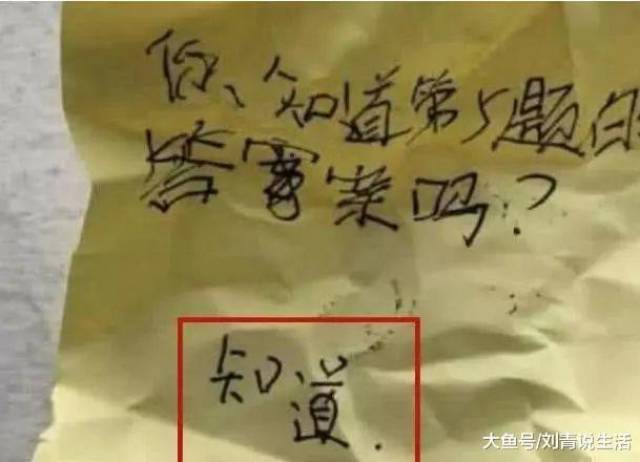 你、知道第5题的
答案吗?
知道.
大鱼号/刘青说生活